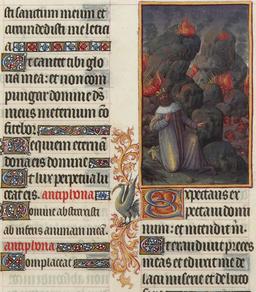 sti saccum meum et
circumdedisti me leticia
Ut cantet tibi glo
ria mea: et non com
pungar domine ds
meus in eternum con
fitebor.
Requiem eternam
dona eis domine.
Et lux perpetua lu
ceat eis. antiphona
Domine abstraxisti
ab inferis animam meam.
antiphona
Complaceat
Expectans ex
pectaui domi
num: et intendit m.
Et exaudiuit preces
meas et eduxit me de
lacu miserie et de luto